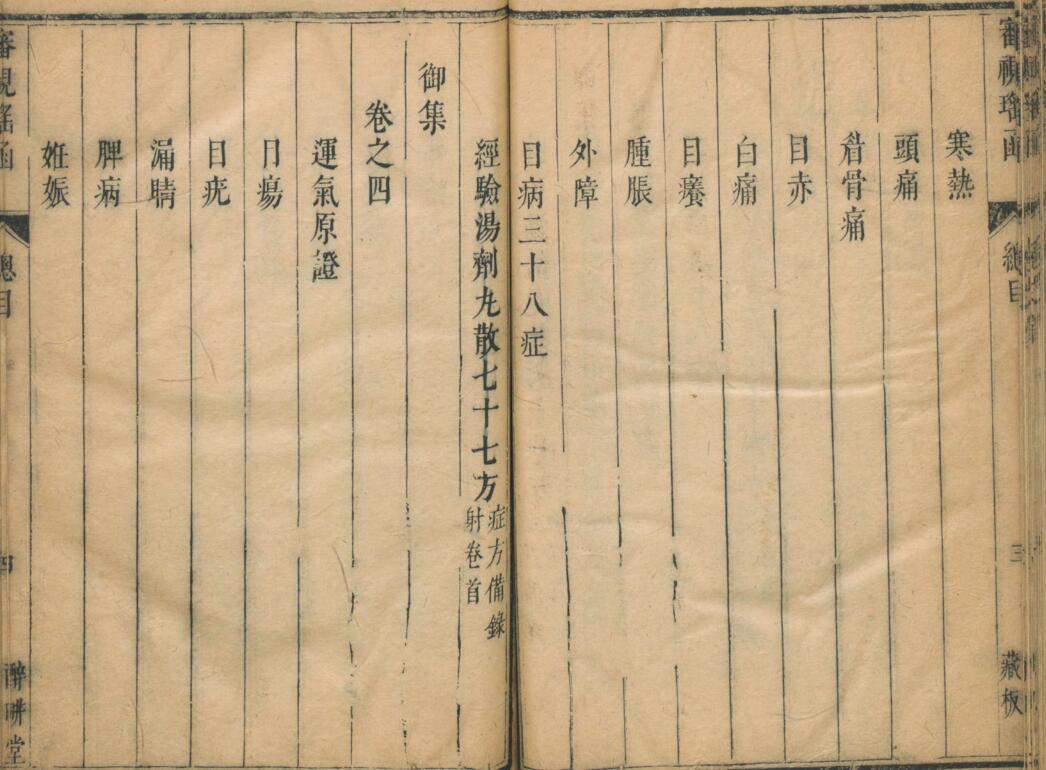 審視瑤函
總目
三
藏板
寒熱
頭痛
眉骨痛
目赤
白痛
目癢
腫脹
外障
目病三十八症
經驗湯劑丸散七十七方
症方備錄
射卷首
御集
卷之四
運氣原證
目瘍
目疣
漏睛
脾病
姙娠
審視瑤函
總目
四
醉畊堂